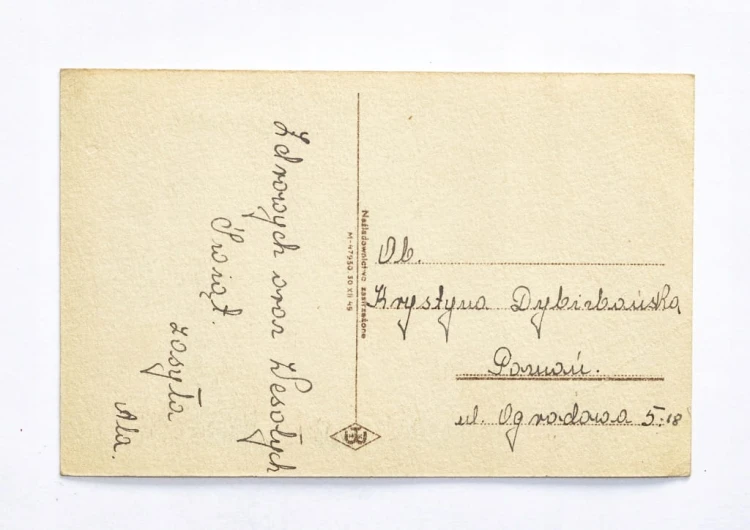 Zdrowych oraz Wesołych
Świąt.
zasyła
Ala.
Naśladownictwo zastrzeżone
M-47950 30 XII 45
Ob.
Krystyna Dybizbańska
Poznań.
ul. Ogradowa 5.18